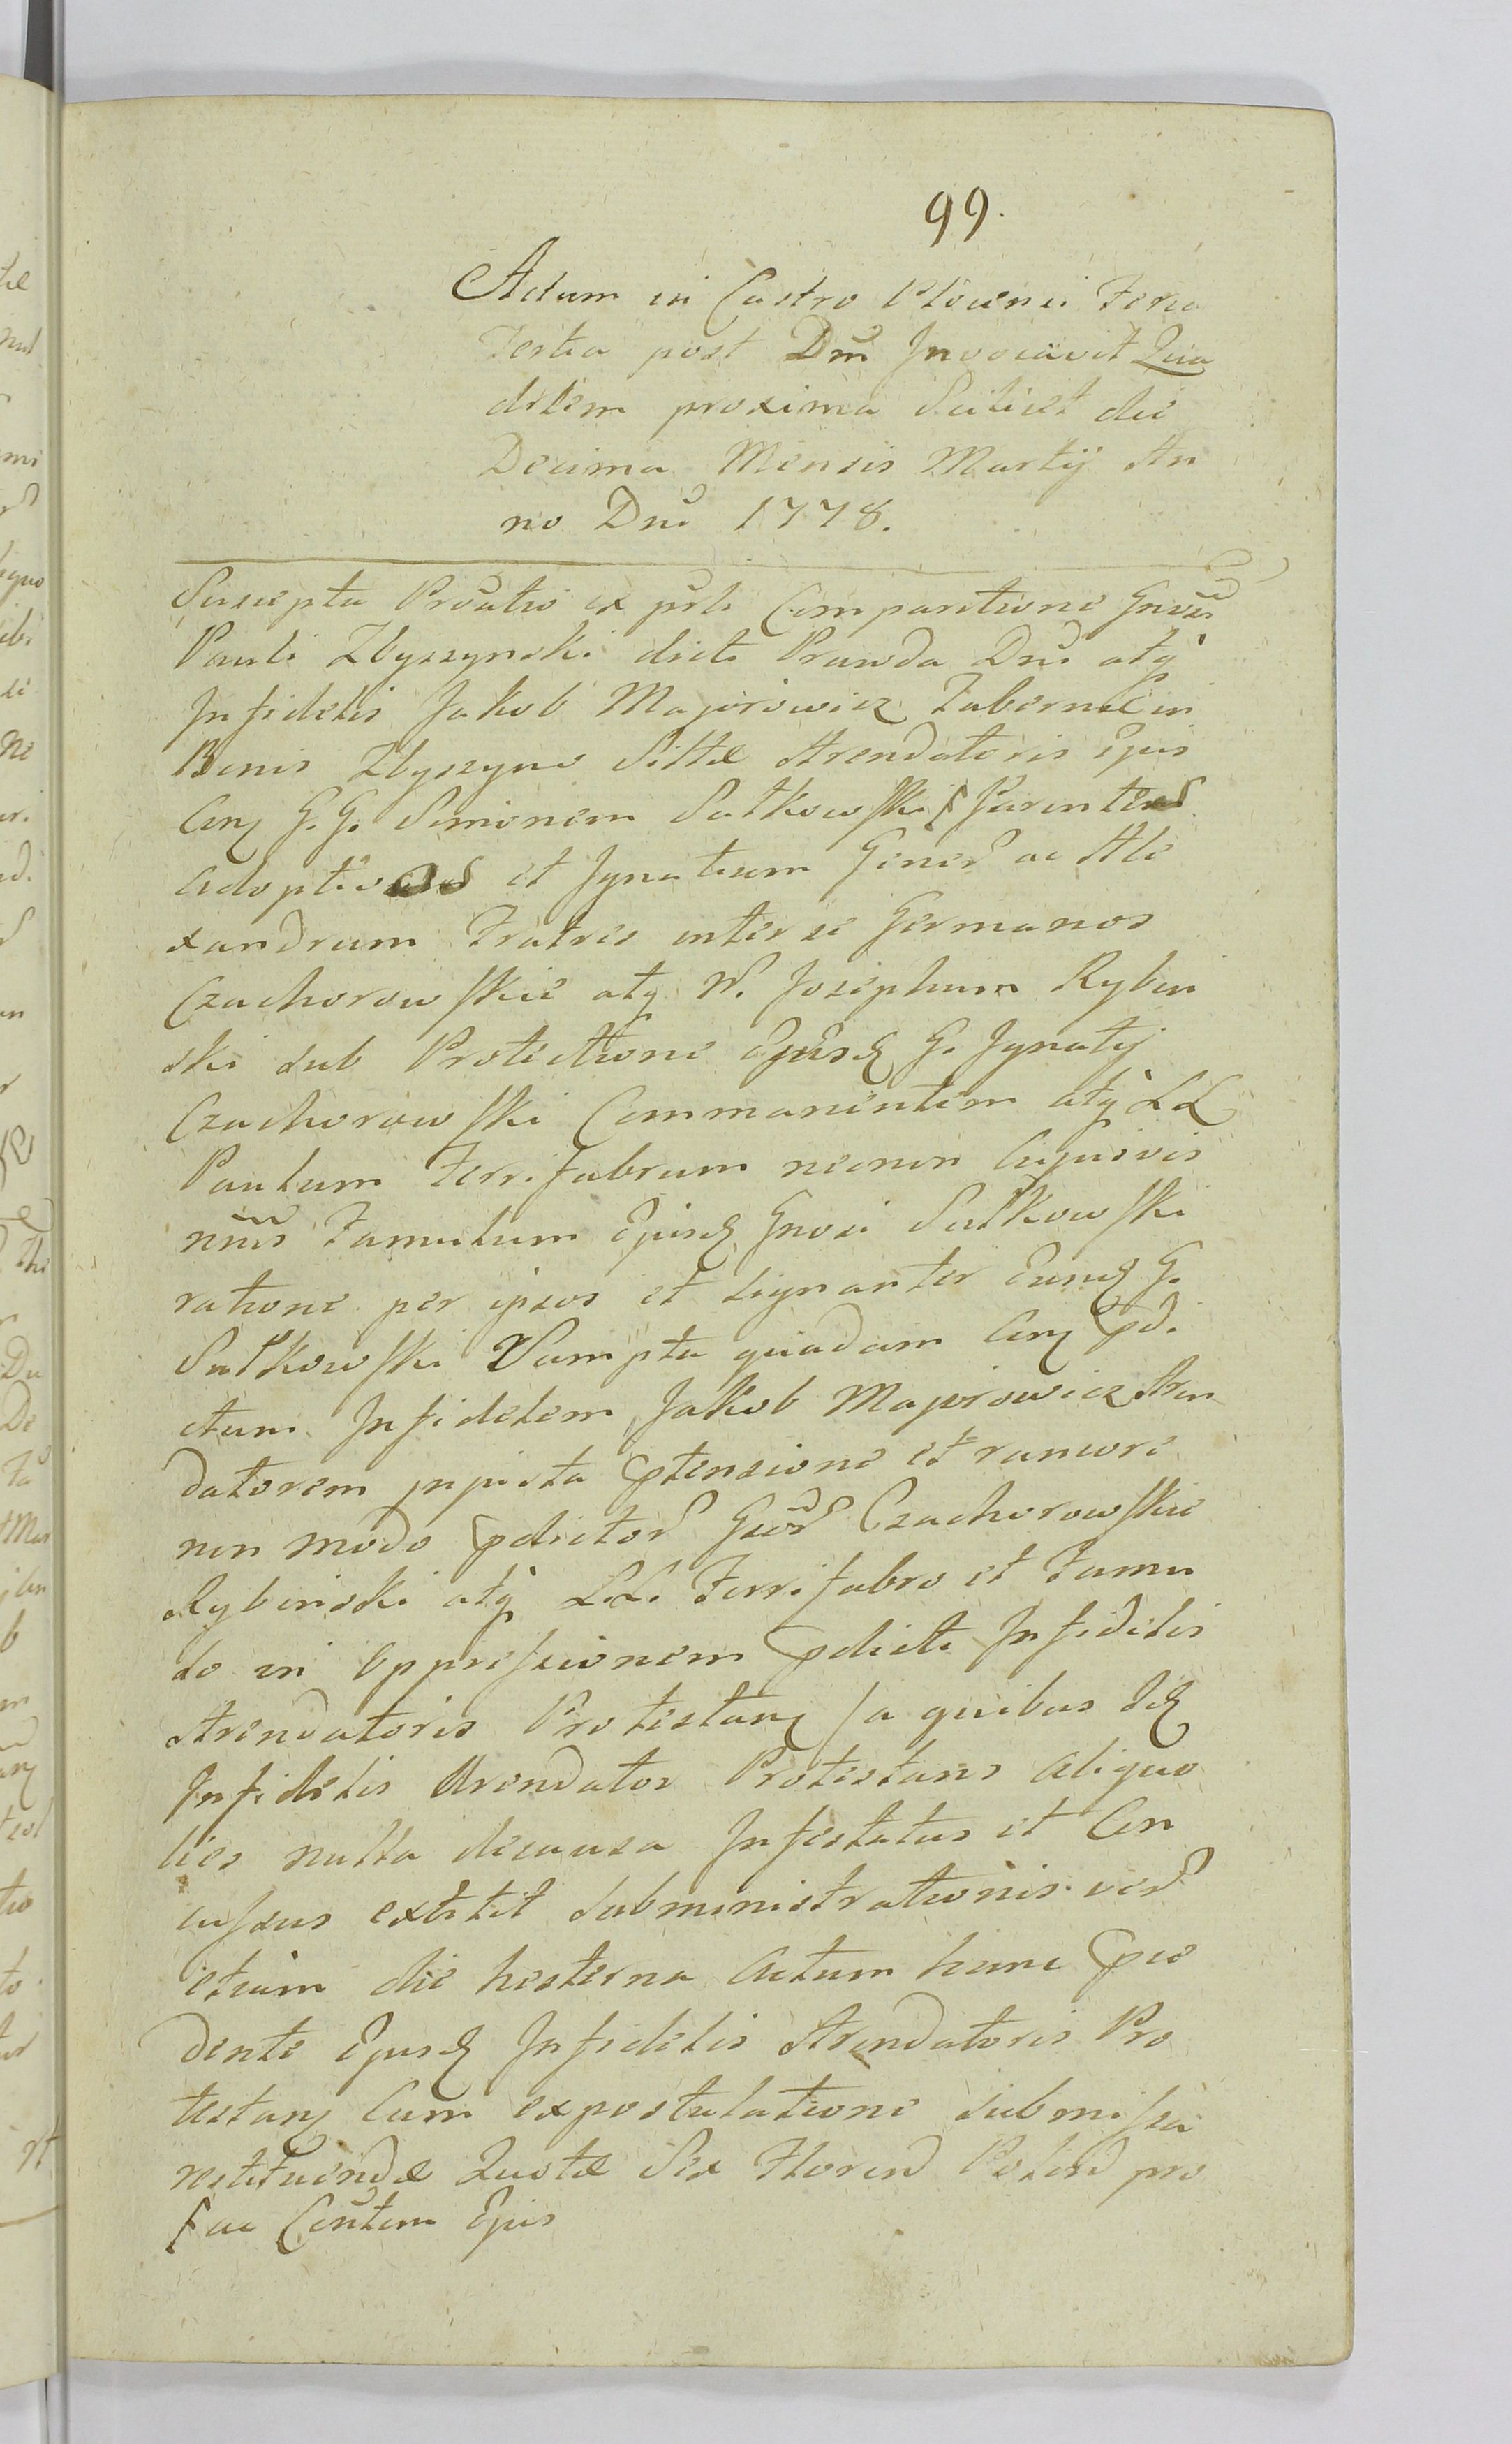 99.
Actum in Castro Plovnen Feria
Tertia post Dm̃ Invocavit Qua
dslem proxima Scilicet die
Decima Mensis Martij An
no Dni 1778.
Suscepta Proũtio ex prsti Comparitione Gnosi
Pauli Zbyszynski dicti Prawda Dni atq
Infidelis Jakob Majorowicz Tabernæ in
Bonis Zbyszyno Sittæ Arendatoris Ejus
Con G. G. Simonem Sutkowski Parentes
adoptivos et Ignatium Gener ac Ale
xandrum Fratres inter se Germanos
Czachorowskie atq N. Josephum Rybin
ski sub Protectione Ejusd G. Ignatij
Czachorowski Commanentem atq LL
Paulum ferrifabrum necnon Cujusvis
nnis Famulum Ejusd Gnosi Sutkowski
ratione per ipsos et signanter Eund G.
Sutkowski Sumpta quadam Con pd.
ctum Infidelem Jakob Majorowicz Aren
datorem injusta ptensione et rancore
non modo pdictor Gsor Czachorowskie
Rybinski atq L.L. Ferrifabro et Famu
lo in oppressionem pdicti Infidelis
Arendatoris Protestan / a quibus Id
Infidelis Arendator Protestans aliquo
ties nulla de causa Infestatus et Con
cussus extitit subministrationis ver
etiam die hesterna Actum hunc pce
dente Ejusd Infidelis Arendatoris Pro
testan Cum expostulatione submissa
restituendæ Quotæ Sex Floren Polon pro
fac Centem Ejus